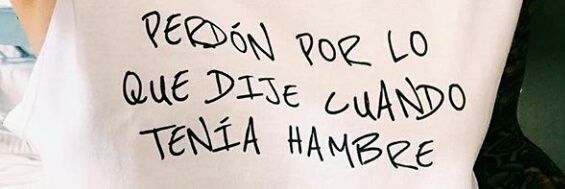 PERDÓN POR LO
QUE DIJE CUANDO
TENÍA HAMBRE